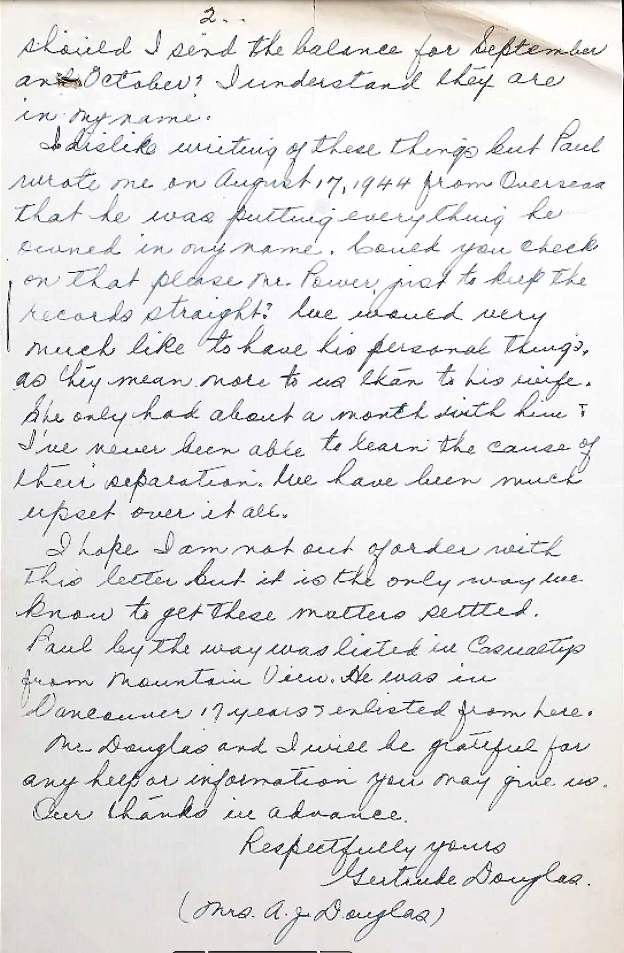 2..
should I send the balance for September
and October? I understand they are
in my name.
I dislike writing of these things but Paul
wrote me on August 17, 1944 from Overseas
that he was putting everything he
owned in my name. Could you check
on that please Mr. Power, just to keep the
records straight? We would very
much like to have his personal things,
as they mean more to us than to his wife.
She only had about a month with him &
I've never been able to learn the cause of
their separation. We have been much
upset over it all.
I hope I am not out of order with
this letter but it is the only way we
know to get these matters settled.
Paul by the way was listed in Casualtys
from Mountain View. He was in
Vancouver 17 years & enlisted from here.
Mr. Douglas and I will be grateful for
any help or information you may give us.
Our thanks in advance.
Respectfully yours
Gertrude Douglas.
(Mrs. A. J. Douglas)